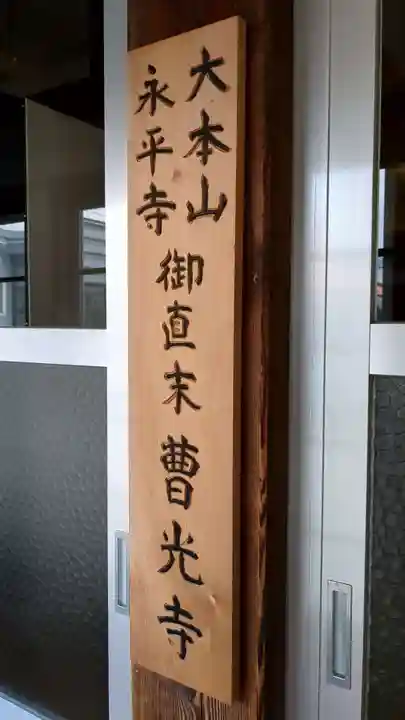 大本山
永平寺
御直末 曹光寺